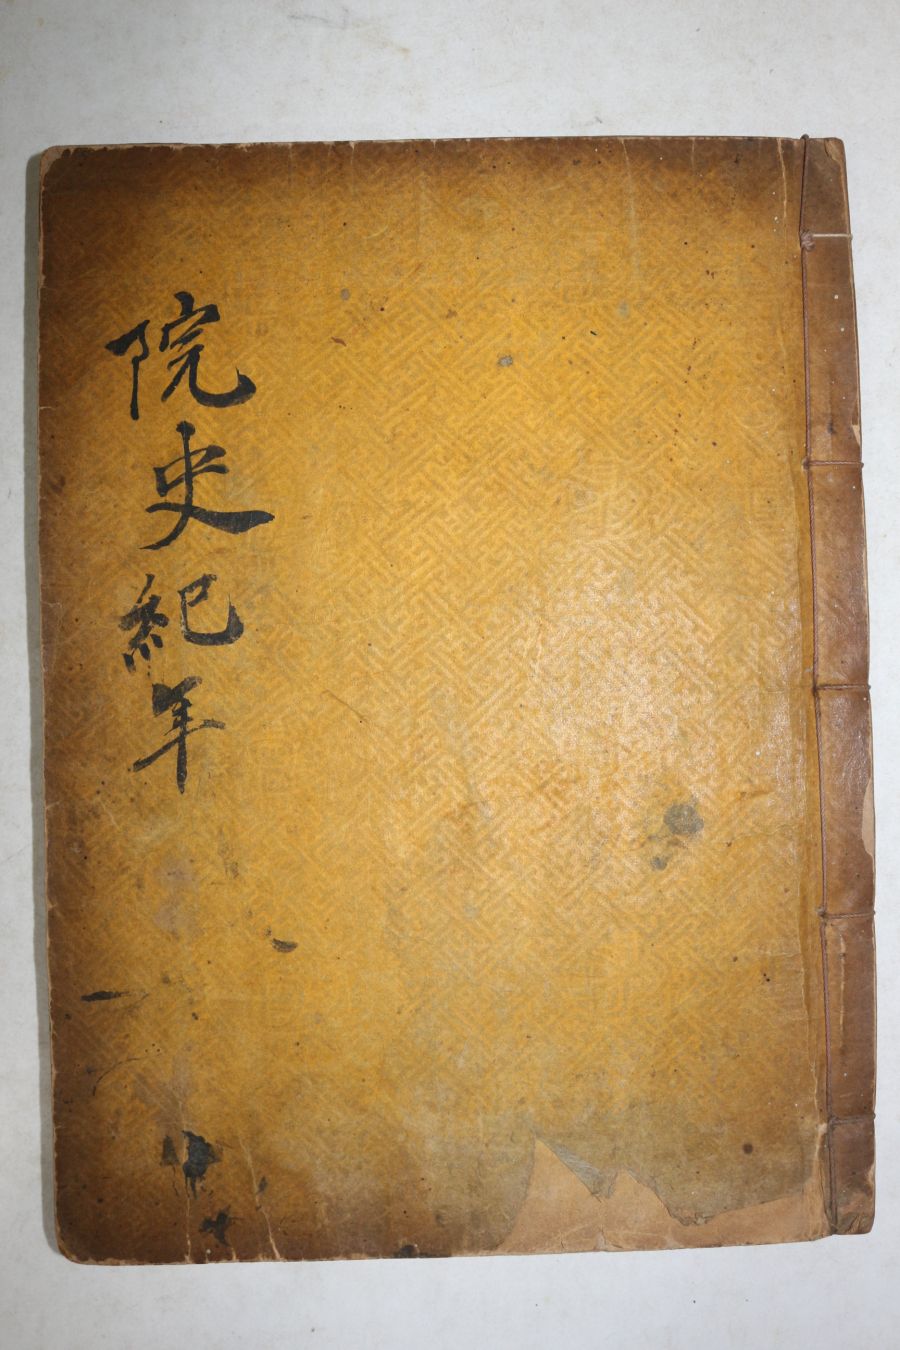 院史紀年